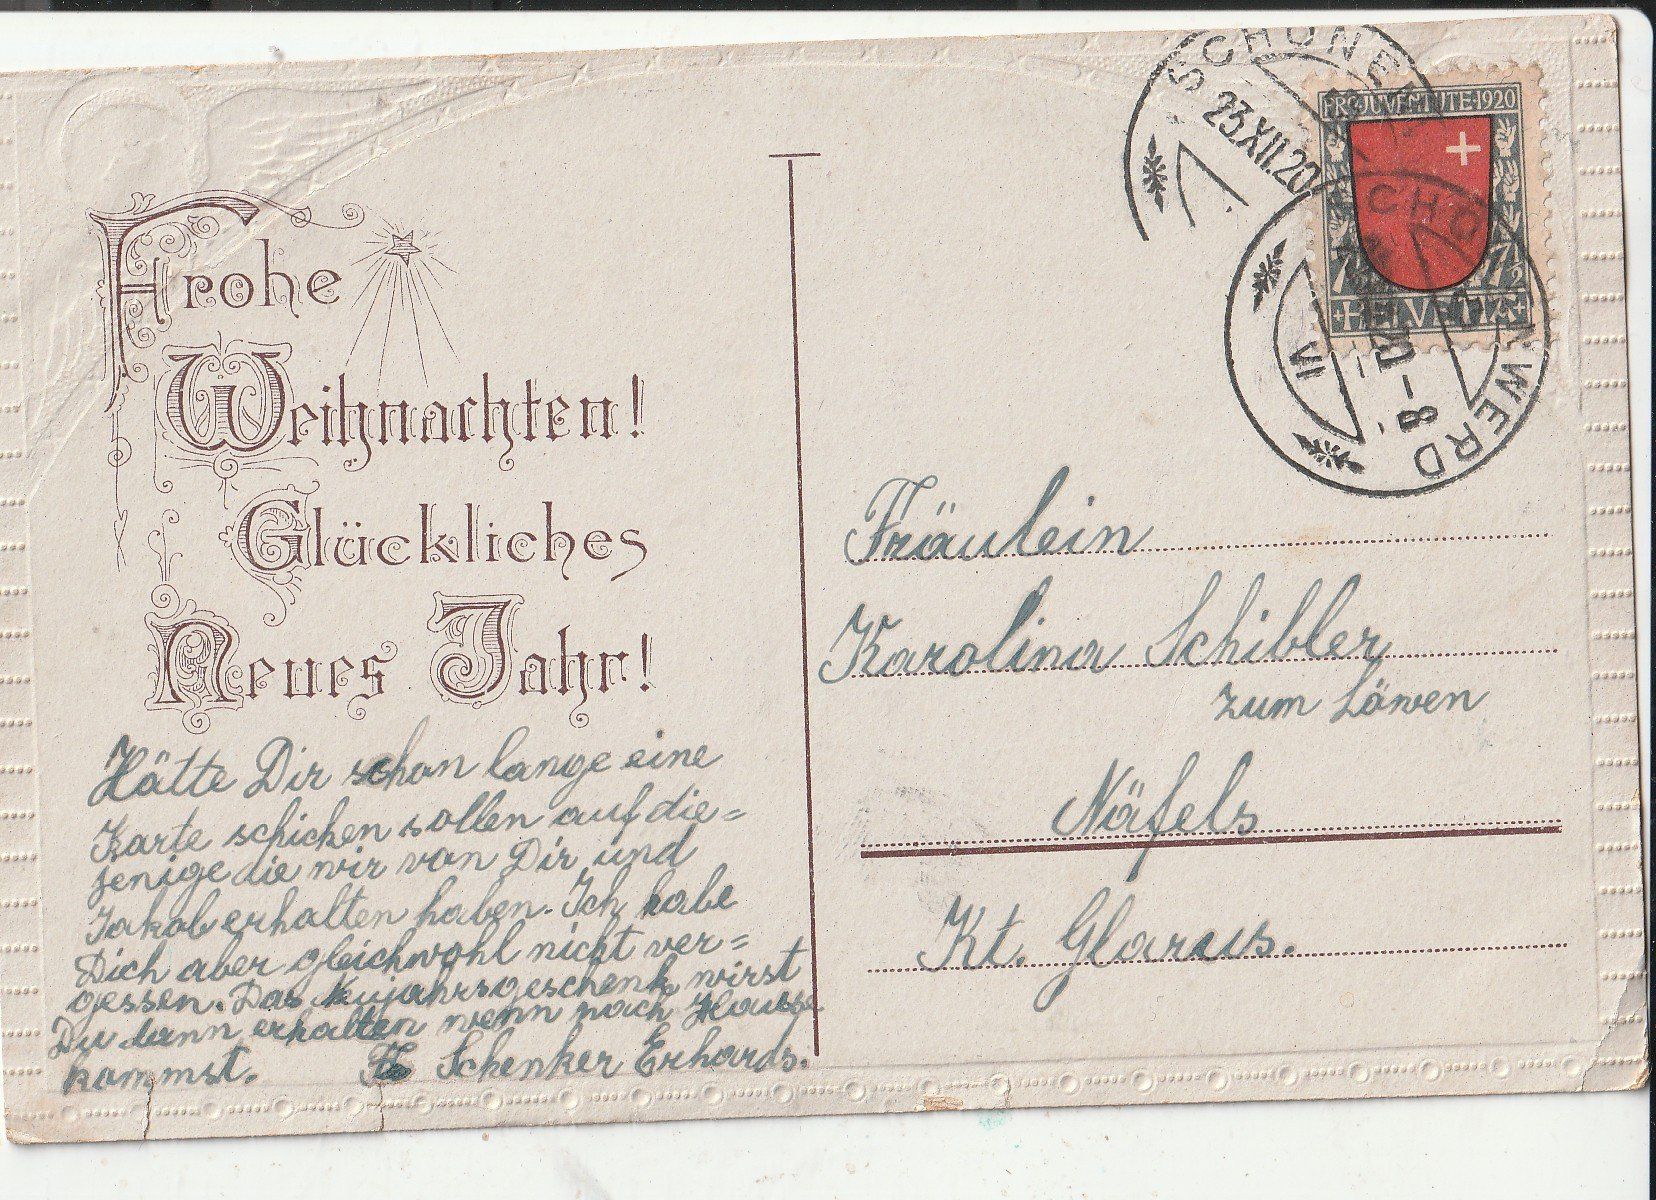 Frohe
Weihnachten!
Glückliches
Neues Jahr!
Hätte Dir schon lange eine
Karte schicken sollen auf die=
jenige die wir von Dir und
Jakob erhalten haben. Ich habe
Dich aber gleichwohl nicht ver=
gessen. Das Neujahrsgeschenk wirst
Du dann erhalten wenn nach Hause
kommst. Schenker Erhards.
SCHÖNE
23.XII.20
PRO JUVENTUTE·1920
7½ 7½
+HELVETIA+
SCHÖNENWERD
VI
-8
Fräulein
Karolina Schibler
zum Löwen
Näfels
Kt. Glarus.